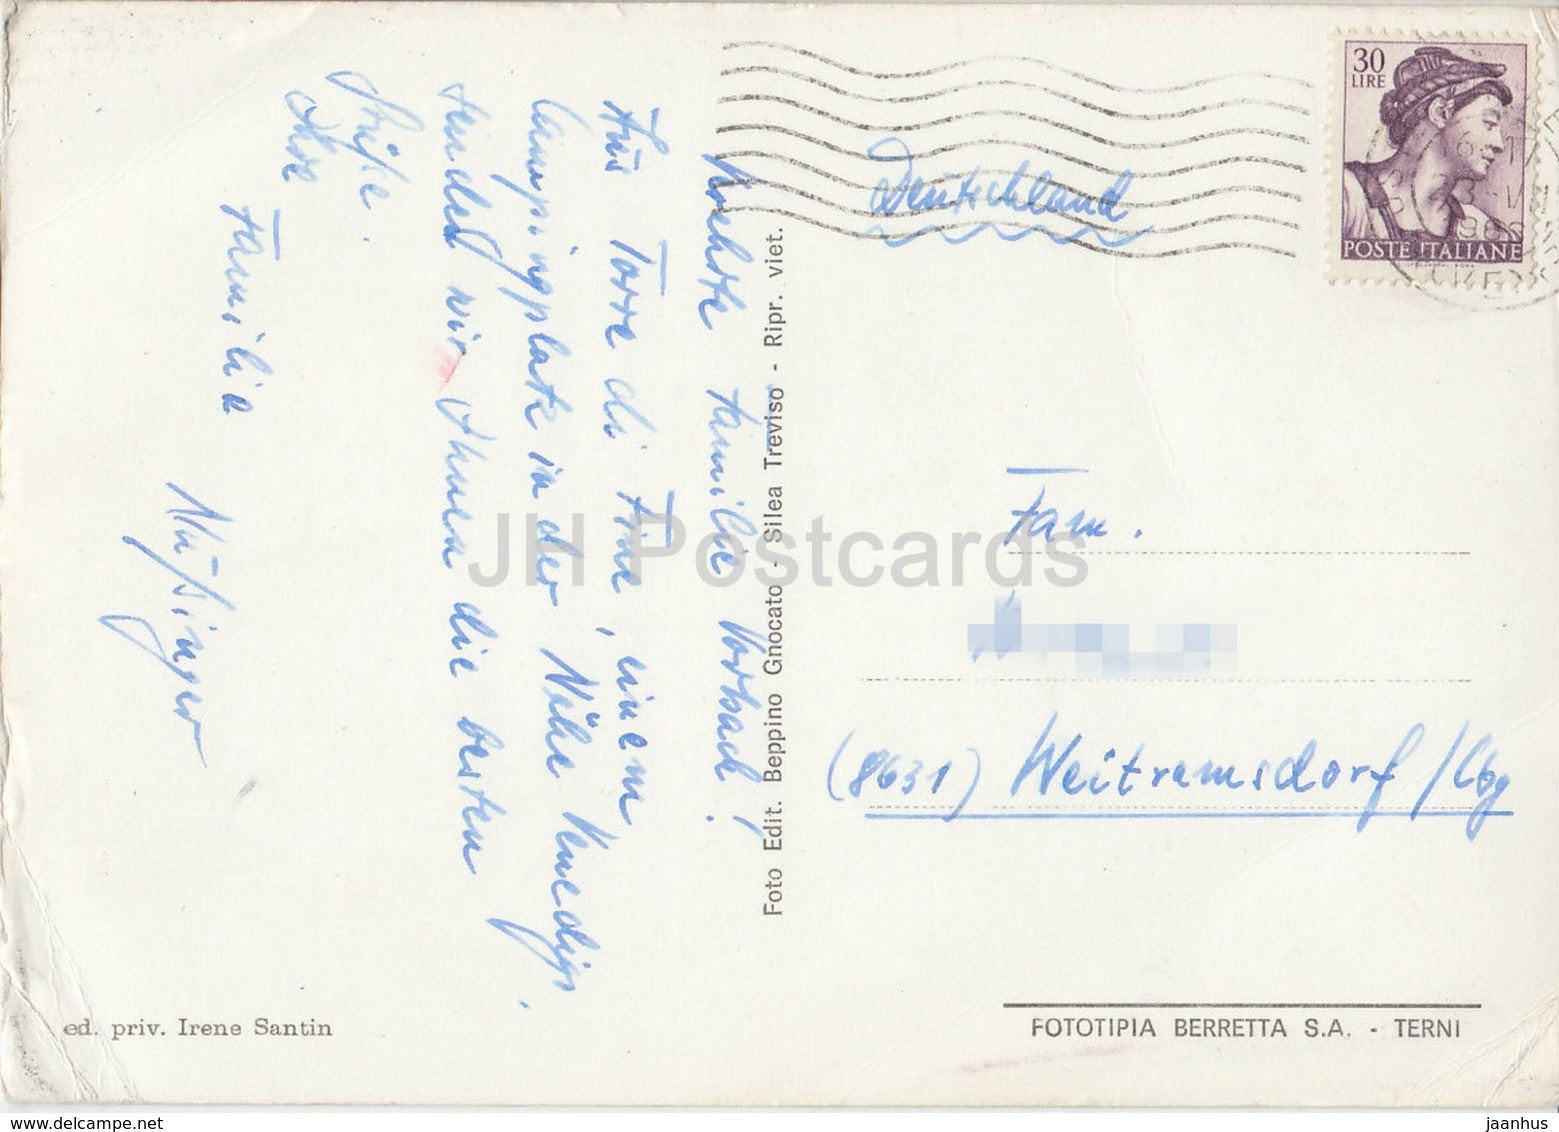 Verehrte Familie Vorbach!
Aus Torre di Fine, einem
Campingplatz in der Nähe Venedigs,
senden wir Ihnen die besten
Grüße.
Ihre
Familie
Nüßinger
Foto Edit. Beppino Gnocato - Silea Treviso - Ripr. viet.
30
LIRE
POSTE ITALIANE
Deutschland
Fam.
(8631) Weitramsdorf / Cbg
ed. priv. Irene Santin
FOTOTIPIA BERRETTA S.A. - TERNI
JH Postcards
www.delcampe.net
jaanhus